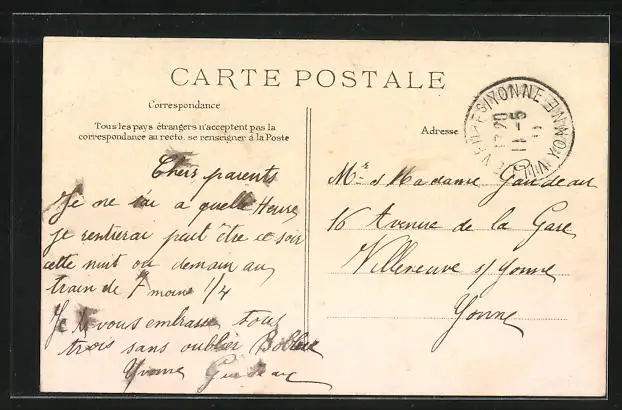 CARTE POSTALE
Correspondance
Tous les pays étrangers n'acceptent pas la
correspondance au recto. se renseigner à la Poste
Adresse
Chers parents
Je ne sai a quelle Heure
je rentrerai peut être ce soir
cette nuit ou demain au
train de 7 moins 1/4
Je vous embrasse tous
trois sans oublier
Yvonne
Mr et Madame
16 Avenue de la Gare
Villeneuve s/ Yonne
Yonne
YONNE
11-5